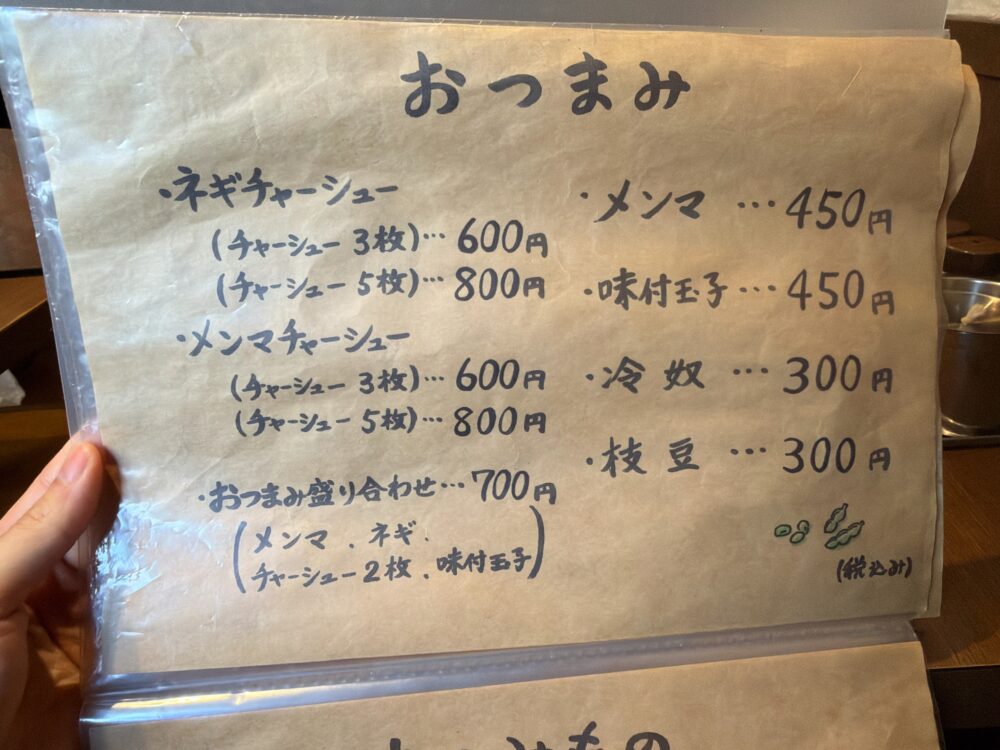 おつまみ
・ネギチャーシュー
(チャーシュー 3枚)… 600円
(チャーシュー 5枚)… 800円
・メンマチャーシュー
(チャーシュー 3枚)… 600円
(チャーシュー 5枚)… 800円
・おつまみ盛り合わせ… 700円
(メンマ、ネギ、
チャーシュー2枚、味付玉子)
・メンマ … 450円
・味付玉子 … 450円
・冷奴 … 300円
・枝豆 … 300円
(税込み)